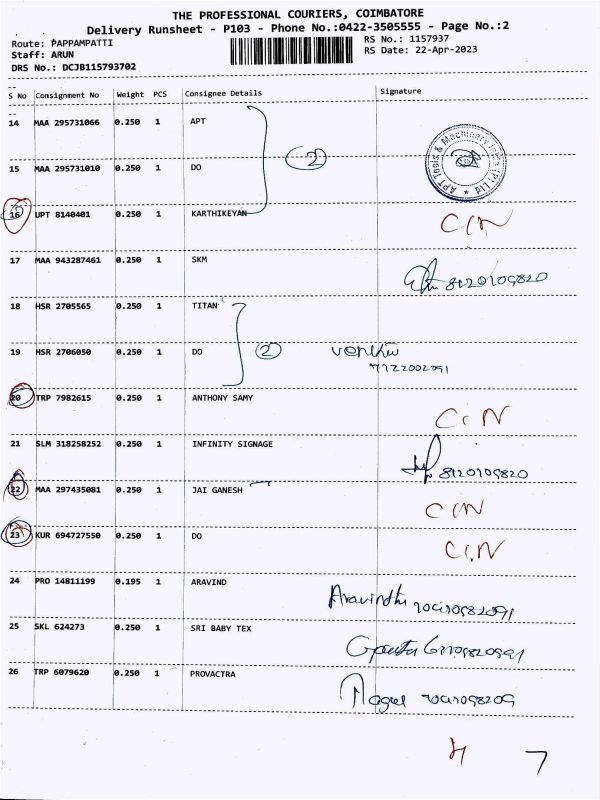 THE PROFESSIONAL COURIERS, COIMBATORE
Delivery Runsheet - P103 - Phone No.:0422-3505555 - Page No.:2
Route: PAPPAMPATTI
RS No.: 1157937
Staff: ARUN
RS Date: 22-Apr-2023
DRS No.: DCJB115793702
S No Consignment No Weight PCS Consignee Details Signature
14 MAA 295731066 0.250 1 APT
2
APT Tools & Machinery India (P) Ltd
15 MAA 295731010 0.250 1 DO
16 UPT 8140401 0.250 1 KARTHIKEYAN CIN
17 MAA 943287461 0.250 1 SKM 8120109820
18 HSR 2705565 0.250 1 TITAN
19 HSR 2706050 0.250 1 DO 2
7722002091
20 TRP 7982615 0.250 1 ANTHONY SAMY CIN
21 SLM 318258252 0.250 1 INFINITY SIGNAGE 8120109820
22 MAA 297435081 0.250 1 JAI GANESH CIN
23 KUR 694727550 0.250 1 DO CIN
24 PRO 14811199 0.195 1 ARAVIND Aravindh
25 SKL 624273 0.250 1 SRI BABY TEX
26 TRP 6079620 0.250 1 PROVACTRA
4 7